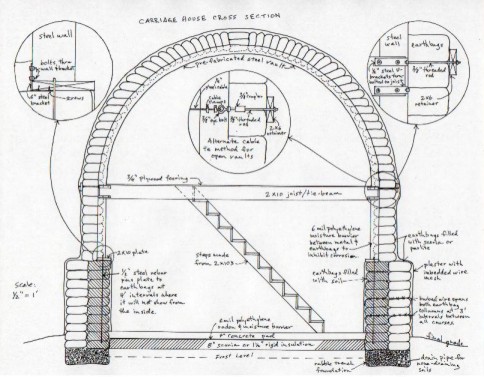 CARRIAGE HOUSE CROSS SECTION
steel wall
bolts thru
wall & bracket
steel
bracket
screws
pre-fabricated steel vault
steel cable
cable clamp
eye bolt
threaded
rod
2x6
retainer
Alternate cable
tie method for
open vaults
steel
wall
earthbags
threaded
rod
2x6
retainer
plywood flooring
2x10 joist/tie-beam
steps made
from 2x10s
6 mil polyethylene
moisture barrier
between metal &
earthbags to
inhibit corrosion
earthbags filled
with scoria or
perlite
2x10 plate
½" steel rebar
pins plate to
earthbags at
4' intervals where
it will not show from
the inside.
earthbags filled
with soil
plaster with
imbedded wire
mesh
barbed wire spans
both earthbag
columns at 3'
intervals between
all courses
Scale:
½" = 1'
6 mil polyethylene
radon & moisture barrier
4" concrete pad
8" scoria or 1½" rigid insulation
frost level
final grade
rubble trench
foundation
drain pipe for
non-draining
soils